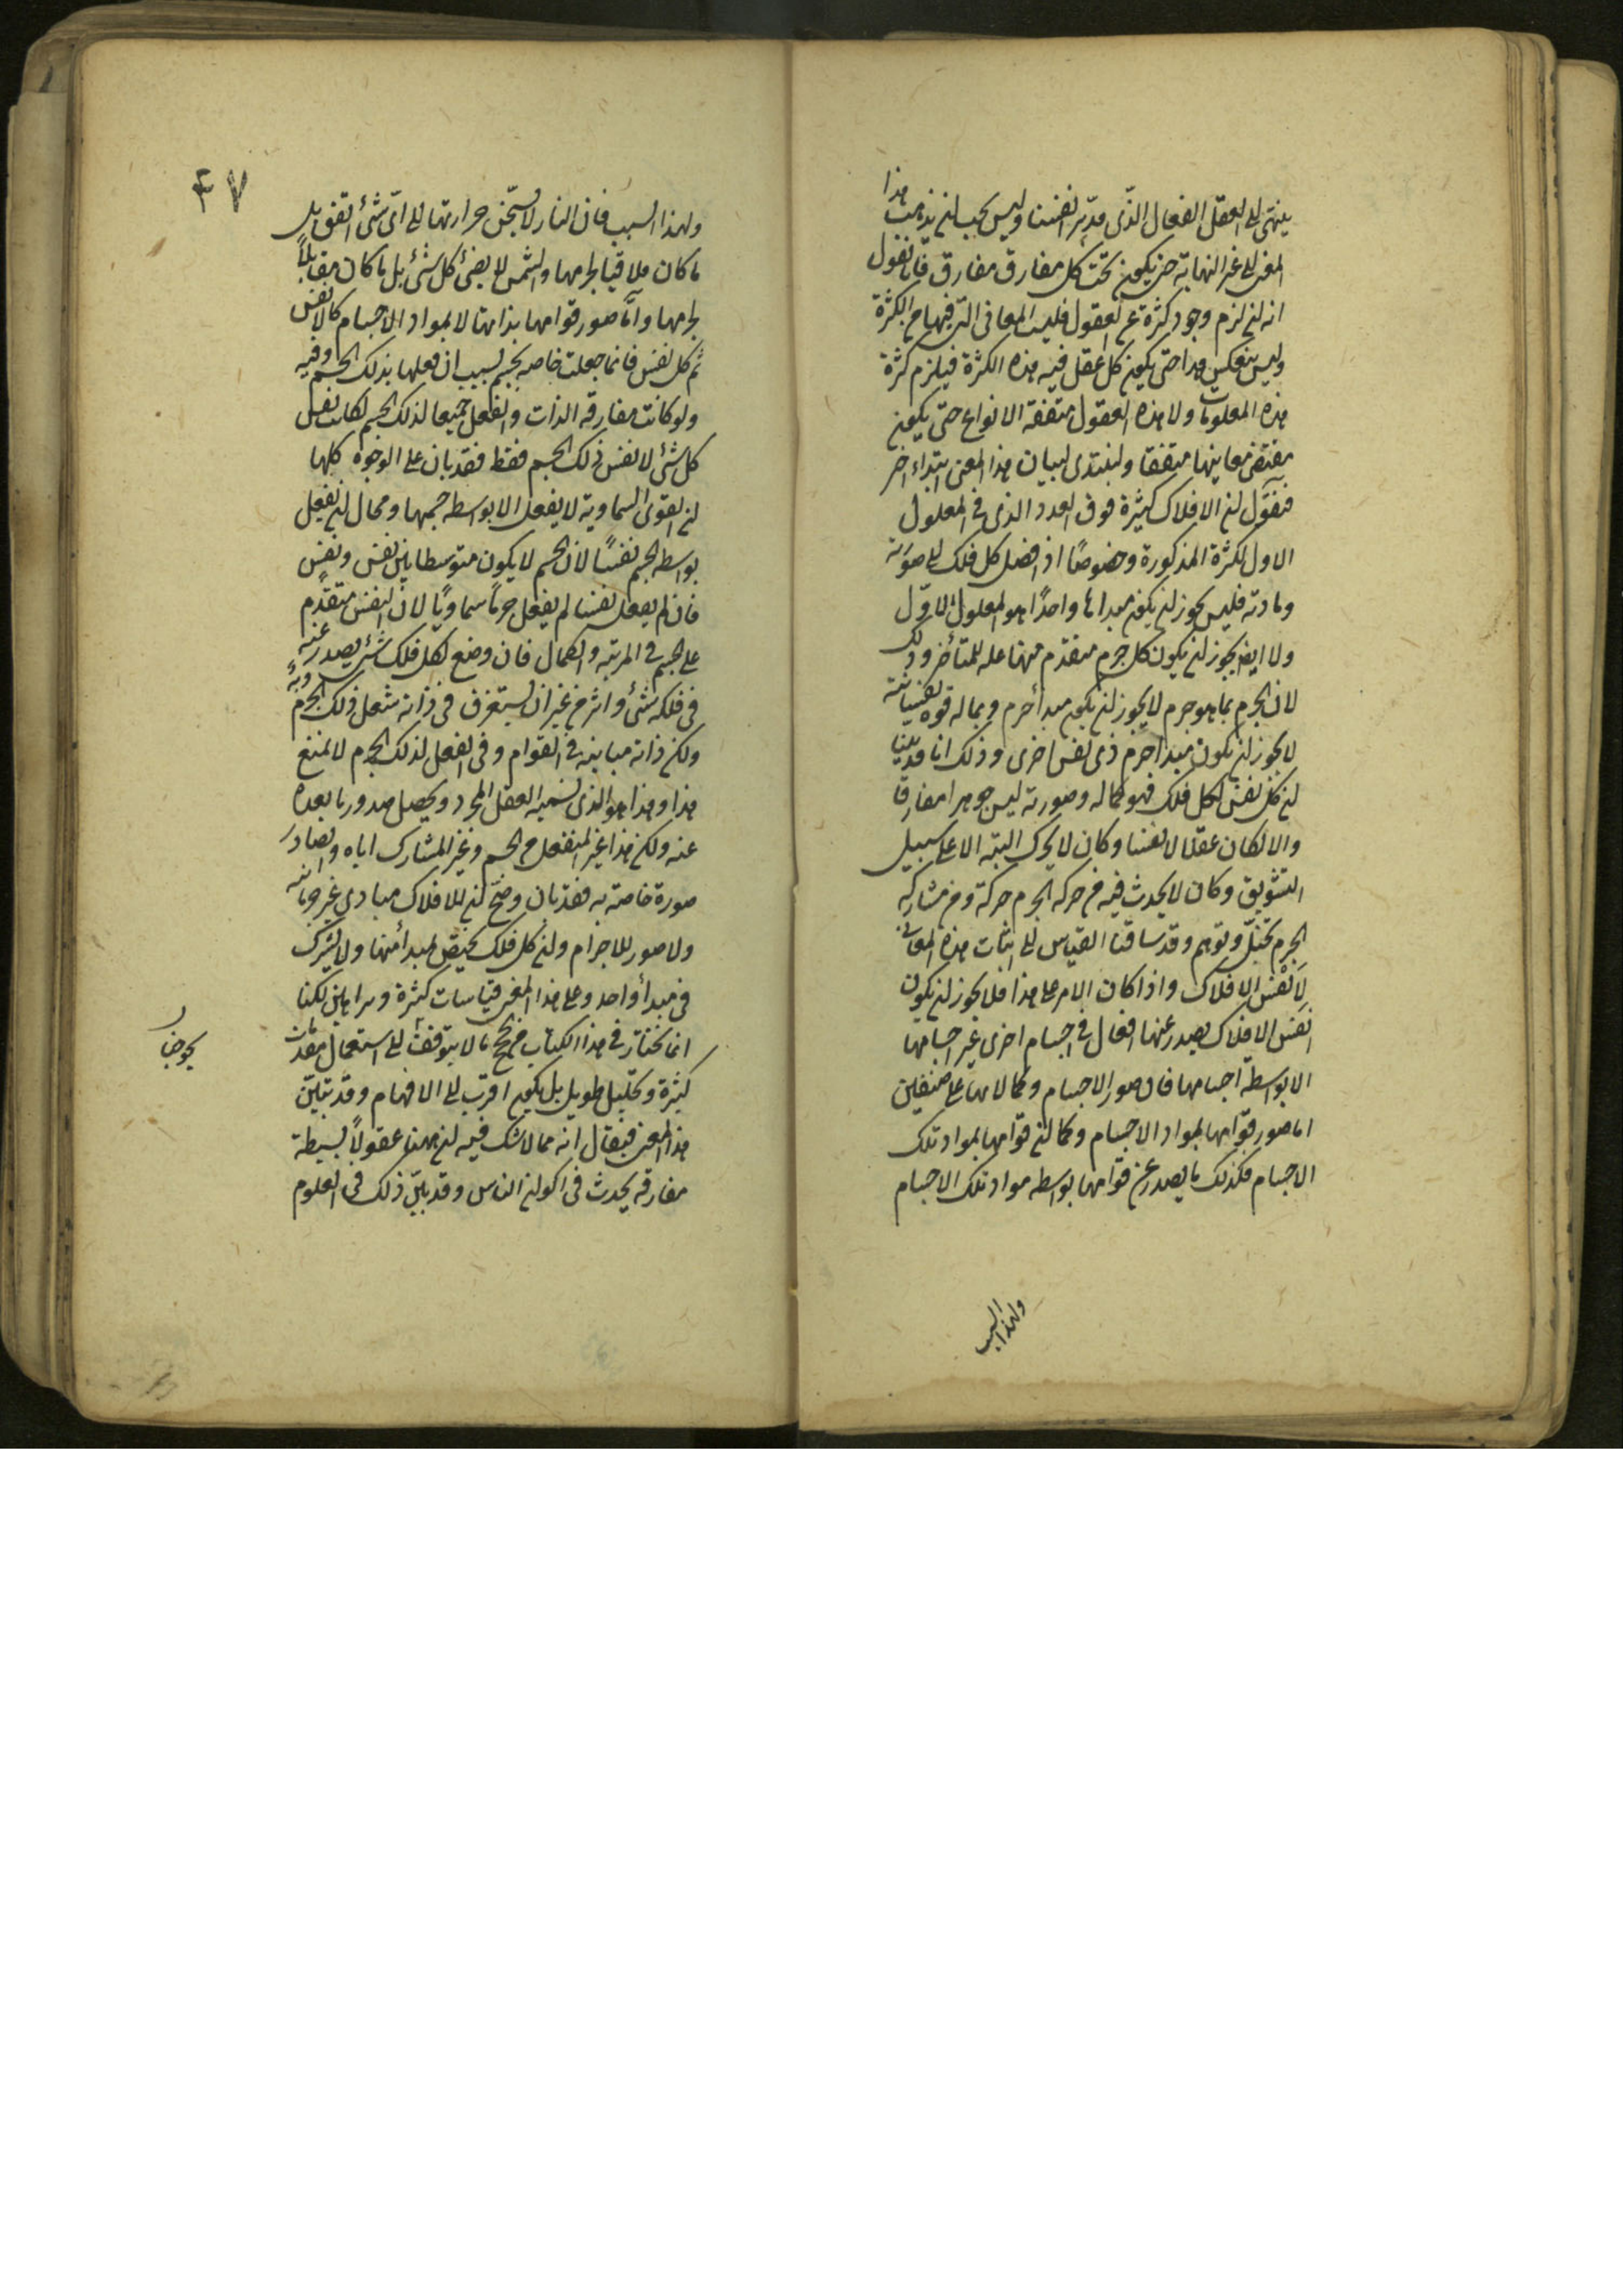 ينتهى الى العقل الفعال الذى مدبّر انفسنا وليس يجب ان يذهب هذا
المعنى الى غير النهاية حتى يكون تحت كل مفارق مفارق فانا نقول
انه ان لزم وجود كثرة عن العقول فلسبب المعانى التى فيها من الكثرة
وليس ينعكس هذا حتى يكون كل عقل فيه هذه الكثرة فيلزم كثرة
هذه المعلومات ولا هذه العقول متفقة الانواع حتى يكون
مقتضى معانيها متفقا ولنبتدى لبيان هذا المعنى ابتداء اخر
فنقول ان الافلاك كثيرة فوق العدد الذى فى المعلول
الاول لكثرة المذكورة وخصوصًا اذا فصل كل فلك الى صورته
ومادته فليس يجوز ان يكون مبداها واحدًا هو المعلول الاول
ولا ايضا يجوز ان يكون كل جرم متقدم منها علة للمتأخر وذلك
لان الجرم بما هو جرم لا يجوز ان يكون مبدأ جرم وبما له قوه نفسانية
لا يجوز ان يكون مبدا جرم ذى نفس اخرى وذلك انا قد بينا
ان كل نفس لكل فلك فهو كماله وصورته ليس جوهرا مفارقا
والا لكان عقلا لا نفسا وكان لا يحرك البته الا على سبيل
التشويق وكان لا يحدث فيه من حركه الجرم حركة ومن مشاركه
الجرم تخيّل وتوهم وقد ساقنا القياس الى اثبات هذه المعانى
لانفس الافلاك واذا كان الامر على هذا فلا يجوز ان يكون
انفس الافلاك يصدر عنها افعال فى اجسام اخرى غير اجسامها
الا بوسطة اجسامها فان صور الاجسام وكمالاتها على صنفين
اما صور قوامها بمواد الاجسام وكما ان قوامها بمواد تلك
الاجسام فكذلك ما يصدر عن قوامها بواسطه مواد تلك الاجسام
ولهذا السبب
٤٧
ولهذا السبب فان النار لا تسخّن حرارتها الى اىّ شئ اتفق بل
ما كان ملاقيا لجرمها والشمس لا يضئ كل شئ بل ما كان مقابلاً
لجرمها وامّا صور قوامها بذاتها لا بمواد الاجسام كالانفس
ثم كل نفس فانما جعلت خاصه بجسم بسبب ان فعلها بذلك الجسم وفيه
ولو كانت مفارقه الذات والفعل جميعا لذلك الجسم لكانت نفس
كل شئ لا نفس ذلك الجسم فقط فقد بان على الوجوه كلها
ان القوى السماوية لا يفعل الا بواسطه جسمها ومحال ان يفعل
بواسطه الجسم نفسًا لان الجسم لا يكون متوسطا بين نفس ونفس
فان لم يفعل نفسا لم يفعل جرماً سماويًا لان النفس متقدّم
على الجسم فى المرتبه والكمال فان وضع لكل فلك شئ يصدر عنه
فى فلكه شئ واثر من غير ان يستغرق فى ذاته شغل ذلك الجرم وبه
ولكن ذاته مباينه فى القوام وفى الفعل لذلك الجرم لا نمنع
هذا وهذا هو الذى نسميه العقل المجرد ويحصل صدور ما بعده
عنه ولكن هذا غير المنفعل من الجسم وغير المشارك اياه والصادر
صورة خاصته به فقد بان وضح ان للافلاك مبادى غير جرمانيه
ولا صور للاجرام وان كل فلك يختص بمبدأ منها ولا يشترك
فى مبدأ واحد وعلى هذا المعنى قياسات كثيرة وبراهين لكنا
انما نختار فى هذا الكتاب من الحجج ما لا يتوقف الى استعمال مقدمات
كثيرة وتحليل طويل بل يكون اقرب الى الافهام وقد تبيّن
هذا المعنى فيقال انه مما لا شك فيه ان ههنا عقولاً بسيطة
مفارقه يحدث فى اكوان الناس وقد بيّن ذلك فى العلوم